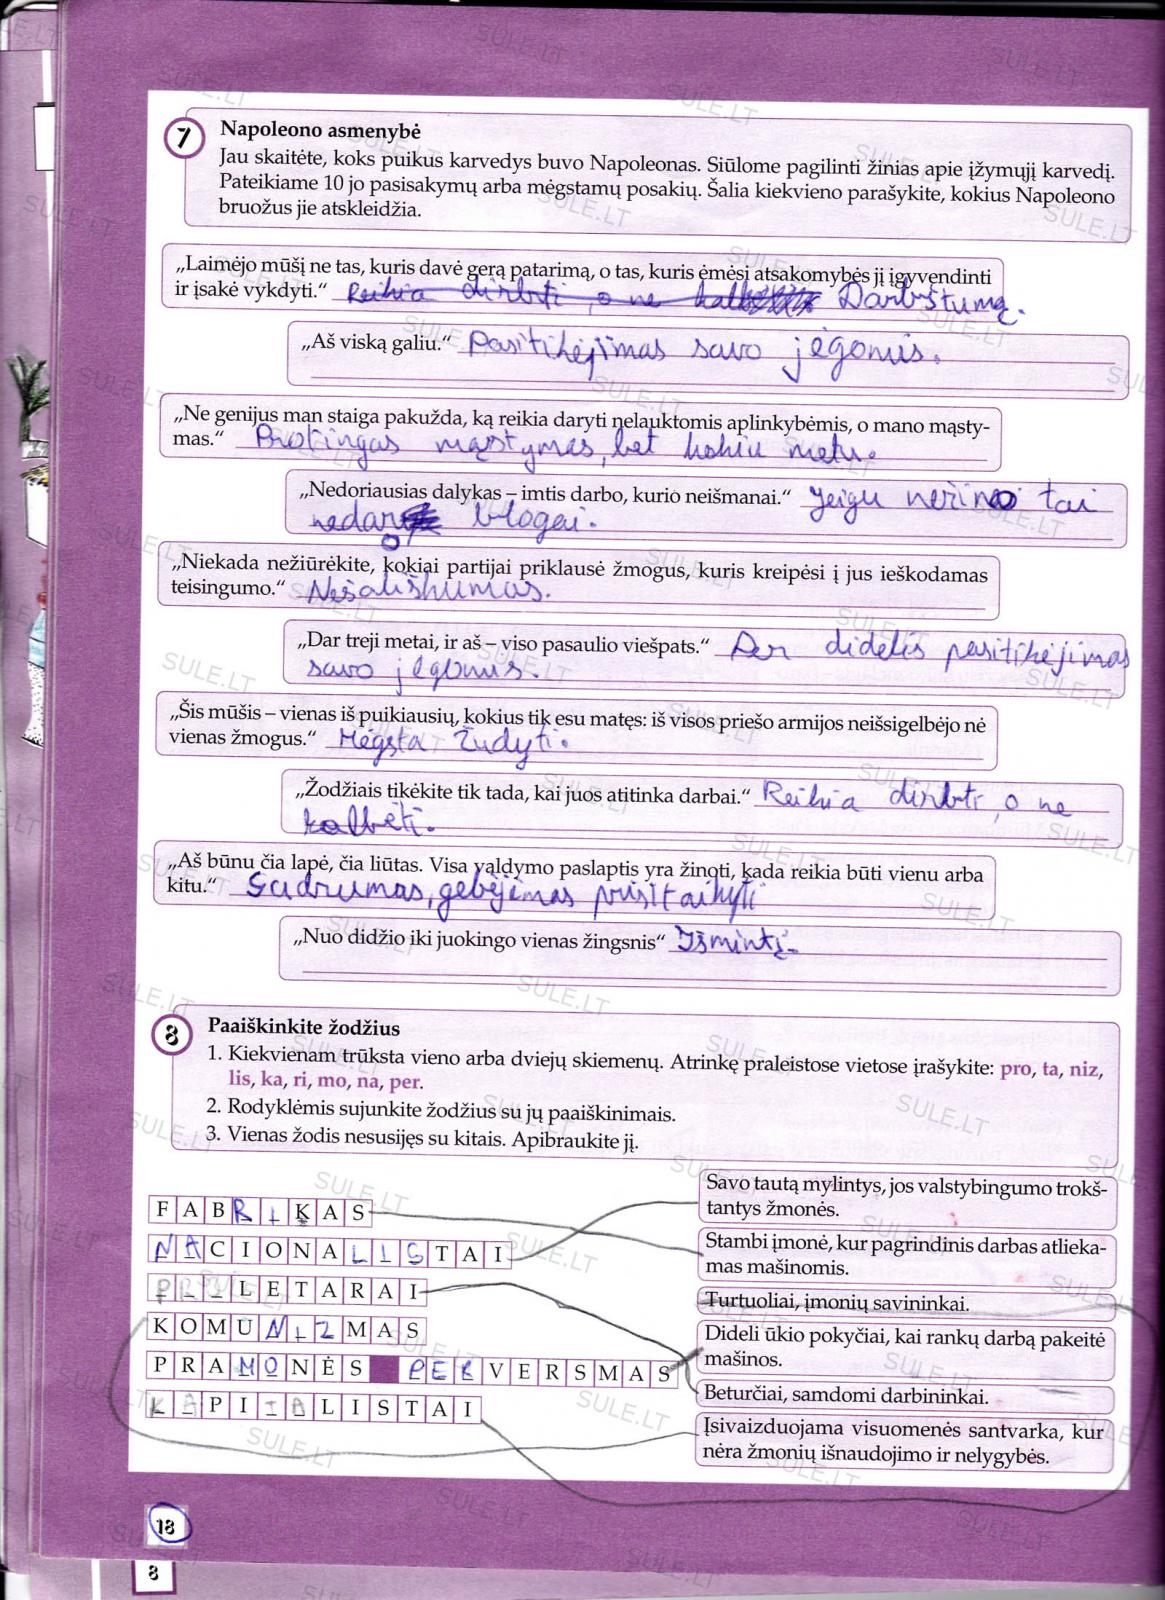 7
Napoleono asmenybė
Jau skaitėte, koks puikus karvedys buvo Napoleonas. Siūlome pagilinti žinias apie įžymųjį karvedį.
Pateikiame 10 jo pasisakymų arba mėgstamų posakių. Šalia kiekvieno parašykite, kokius Napoleono
bruožus jie atskleidžia.
„Laimėjo mūšį ne tas, kuris davė gerą patarimą, o tas, kuris ėmėsi atsakomybės jį įgyvendinti
ir įsakė vykdyti.“ Reikia dirbti, o ne Darbštumą.
„Aš viską galiu.“ Pasitikėjimas savo jėgomis.
„Ne genijus man staiga pakužda, ką reikia daryti nelauktomis aplinkybėmis, o mano mąsty-
mas.“ Protingas mąstymas, bet kokiu metu.
„Nedoriausias dalykas – imtis darbo, kurio neišmanai.“ Jeigu nežino tai
nedaro blogai.
„Niekada nežiūrėkite, kokiai partijai priklausė žmogus, kuris kreipėsi į jus ieškodamas
teisingumo.“ Nešališkumas.
„Dar treji metai, ir aš – viso pasaulio viešpats.“ Per didelis pasitikėjimas
savo jėgomis.
„Šis mūšis – vienas iš puikiausių, kokius tik esu matęs: iš visos priešo armijos neišsigelbėjo nė
vienas žmogus.“ Mėgsta žudyti.
„Žodžiais tikėkite tik tada, kai juos atitinka darbai.“ Reikia dirbti, o ne
kalbėti.
„Aš būnu čia lapė, čia liūtas. Visa valdymo paslaptis yra žinoti, kada reikia būti vienu arba
kitu.“ Gudrumas, gebėjimas prisitaikyti
„Nuo didžio iki juokingo vienas žingsnis“ Išmintį.
8
Paaiškinkite žodžius
1. Kiekvienam trūksta vieno arba dviejų skiemenų. Atrinkę praleistose vietose įrašykite: pro, ta, niz,
lis, ka, ri, mo, na, per.
2. Rodyklėmis sujunkite žodžius su jų paaiškinimais.
3. Vienas žodis nesusijęs su kitais. Apibraukite jį.
FABRIKAS
NACIONALISTAI
PROLETARAI
KOMUNIZMAS
PRAMONĖS PERVERSMAS
KAPITALISTAI
Savo tautą mylintys, jos valstybingumo trokš-
tantys žmonės.
Stambi įmonė, kur pagrindinis darbas atlieka-
mas mašinomis.
Turtuoliai, įmonių savininkai.
Dideli ūkio pokyčiai, kai rankų darbą pakeitė
mašinos.
Beturčiai, samdomi darbininkai.
Įsivaizduojama visuomenės santvarka, kur
nėra žmonių išnaudojimo ir nelygybės.
18
8
SULE.LT